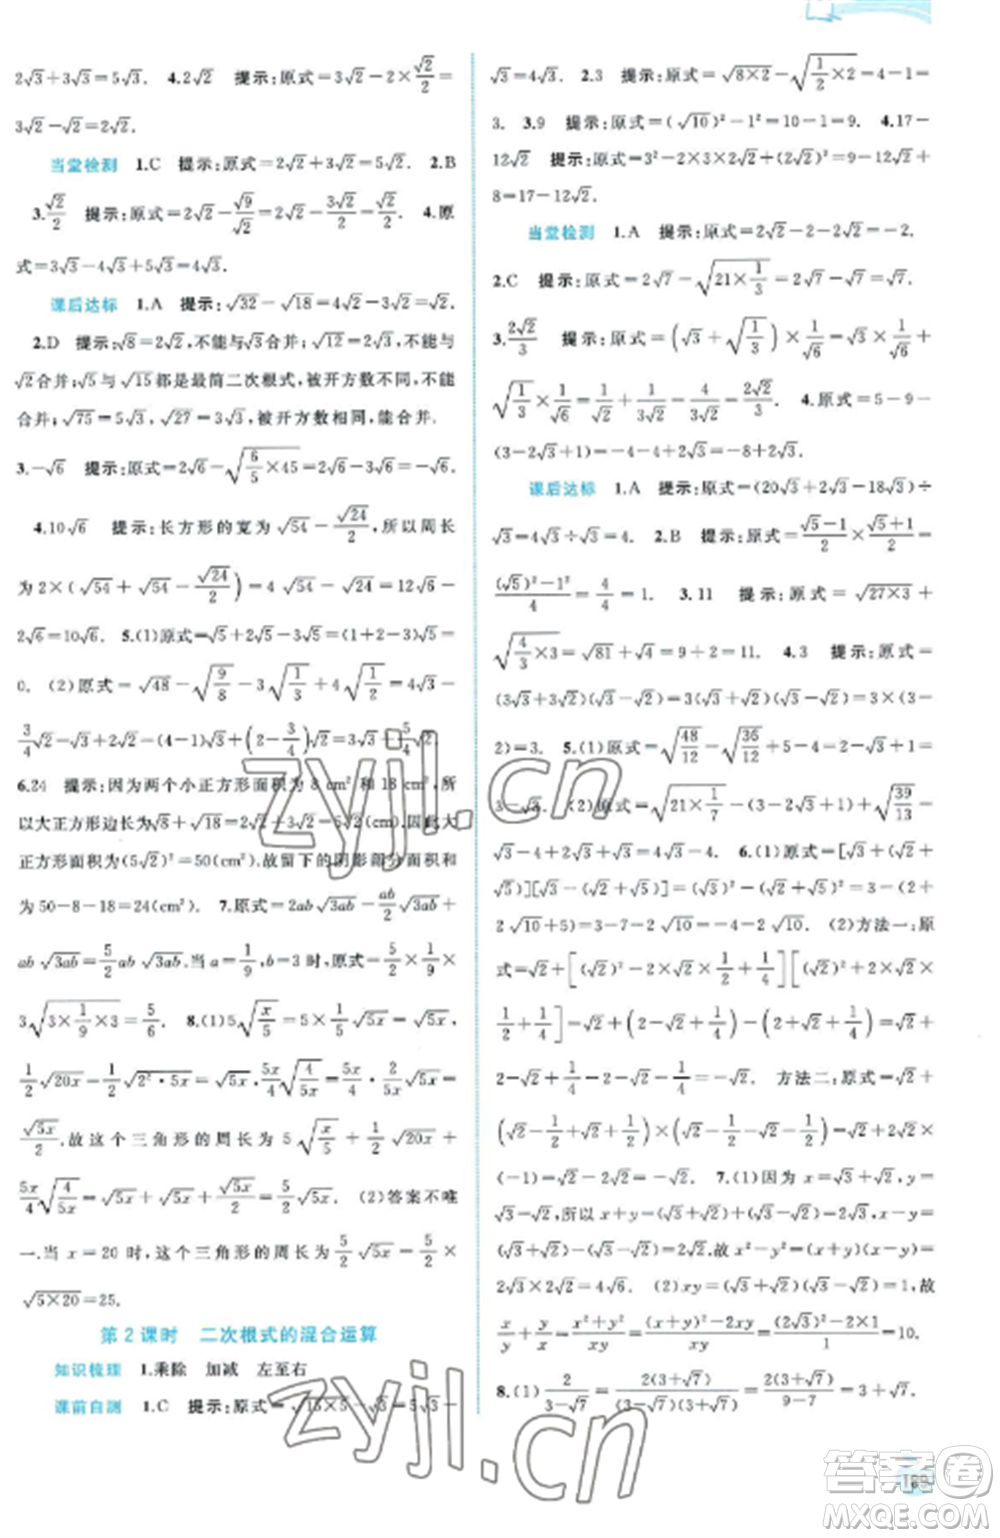 2√3+3√3=5√3. 4.2√2 提示:原式=3√2-2×√2/2=
3√2-√2=2√2.
当堂检测 1.C 提示:原式=2√2+3√2=5√2. 2.B
3.√2/2 提示:原式=2√2-√9/√2=2√2-3√2/2=√2/2. 4.原
式=3√3-4√3+5√3=4√3.
课后达标 1.A 提示:√32-√18=4√2-3√2=√2.
2.D 提示:√8=2√2,不能与√3合并;√12=2√3,不能与
√2合并;√5与√15都是最简二次根式,被开方数不同,不能
合并;√75=5√3,√27=3√3,被开方数相同,能合并.
3.-√6 提示:原式=2√6-√(6/5×45)=2√6-3√6=-√6.
4.10√6 提示:长方形的宽为√54-√24/2,所以周长
为2×(√54+√54-√24/2)=4√54-√24=12√6-
2√6=10√6. 5.(1)原式=√5+√5-2√5=(1+1-2)√5=
0. (2)原式=√48-√(9/8)-3√(1/3)+4√(1/2)=4√3-
3/4√2-√3+2√2=(4-1)√3+(2-3/4)√2=3√3+5/4√2.
6.24 提示:因为两个小正方形面积为8 cm²和18 cm²,所
以大正方形边长为√8+√18=2√2+3√2=5√2(cm),因此大
正方形面积为(5√2)²=50(cm²),故留下的阴影部分面积和
为50-8-18=24(cm²). 7.原式=2ab√3ab-ab/2√3ab+
ab√3ab=5/2ab√3ab.当a=1/9,b=3时,原式=5/2×1/9×
3√(3×1/9×3)=5/6. 8.(1)5√(x/5)=5×1/5×√5x=√5x,
1/2√20x=1/2√(2²·5x)=√5x,5x/4√(4/5x)=5x/4×2/5x√5x=
√5x/2.故这个三角形的周长为5√(x/5)+1/2√20x+
5x/4√(4/5x)=√5x+√5x+√5x/2=5/2√5x. (2)答案不唯
一.当x=20时,这个三角形的周长为5/2√5x=5/2×
√(5×20)=25.
第2课时 二次根式的混合运算
知识梳理 1.乘除 加减 左至右
课前自测 1.C 提示:原式=√(15×5)-√3=5√3-
√3=4√3. 2.3 提示:原式=√(8×2)-√(1/2×2)=4-1=
3. 3.9 提示:原式=(√10)²-1²=10-1=9. 4.17-
12√2 提示:原式=3²-2×3×2√2+(2√2)²=9-12√2+
8=17-12√2.
当堂检测 1.A 提示:原式=2√2-2-2√2=-2.
2.C 提示:原式=2√7-√(21×1/3)=2√7-√7=√7.
3.2√2/3 提示:原式=(√3+√(1/3))×1/√6=√3×1/√6+
√(1/3)×1/√6=1/√2+1/3√2=4/3√2=2√2/3. 4.原式=5-9-
(3-2√2+1)=-4-4+2√2=-8+2√2.
课后达标 1.A 提示:原式=(20√3+2√3-18√3)÷
√3=4√3÷√3=4. 2.B 提示:原式=(√5-1)/2×(√5+1)/2=
((√5)²-1²)/4=4/4=1. 3.11 提示:原式=√(27×3)+
√(4/3×3)=√81+√4=9+2=11. 4.3 提示:原式=
(3√3+3√2)(√3-√2)=3(√3+√2)(√3-√2)=3×(3-
2)=3. 5.(1)原式=√(48/12)-√(36/12)+1=2-√3+1=
3-√3. (2)原式=√(21×1/7)-(5-2√5+2√5-1)+√(39/13)=
√3-4+√3=2√3-4. 6.(1)原式=[√3+(√2+
√5)][√3-(√2+√5)]=(√3)²-(√2+√5)²=3-(2+
2√10+5)=3-7-2√10=-4-2√10. (2)方法一:原
式=√2+[(√2)²-1/2√2+1/4]-[(√2)²+
1/2√2+1/4]=√2+(2-1/2√2+1/4)-(2+1/2√2+1/4)=√2+
方法二:原式=√2+
(-1)=√2-√2=0. 7.(1)因为x=√3+√2,y=
√3-√2,所以x+y=(√3+√2)+(√3-√2)=2√3,x-y=
(√3+√2)-(√3-√2)=2√2.故x²-y²=(x+y)(x-y)=
2√3×2√2=4√6. (2)xy=(√3+√2)(√3-√2)=1,故
x/y+y/x=(x²+y²)/xy=((x+y)²-2xy)/xy=((2√3)²-2×1)/1=10.
8.(1)2/(3-√7)=2(3+√7)/((3-√7)(3+√7))=2(3+√7)/(9-7)=3+√7.
189
zyjl.cn
zyjl.cn
答案圈
MXQE.COM